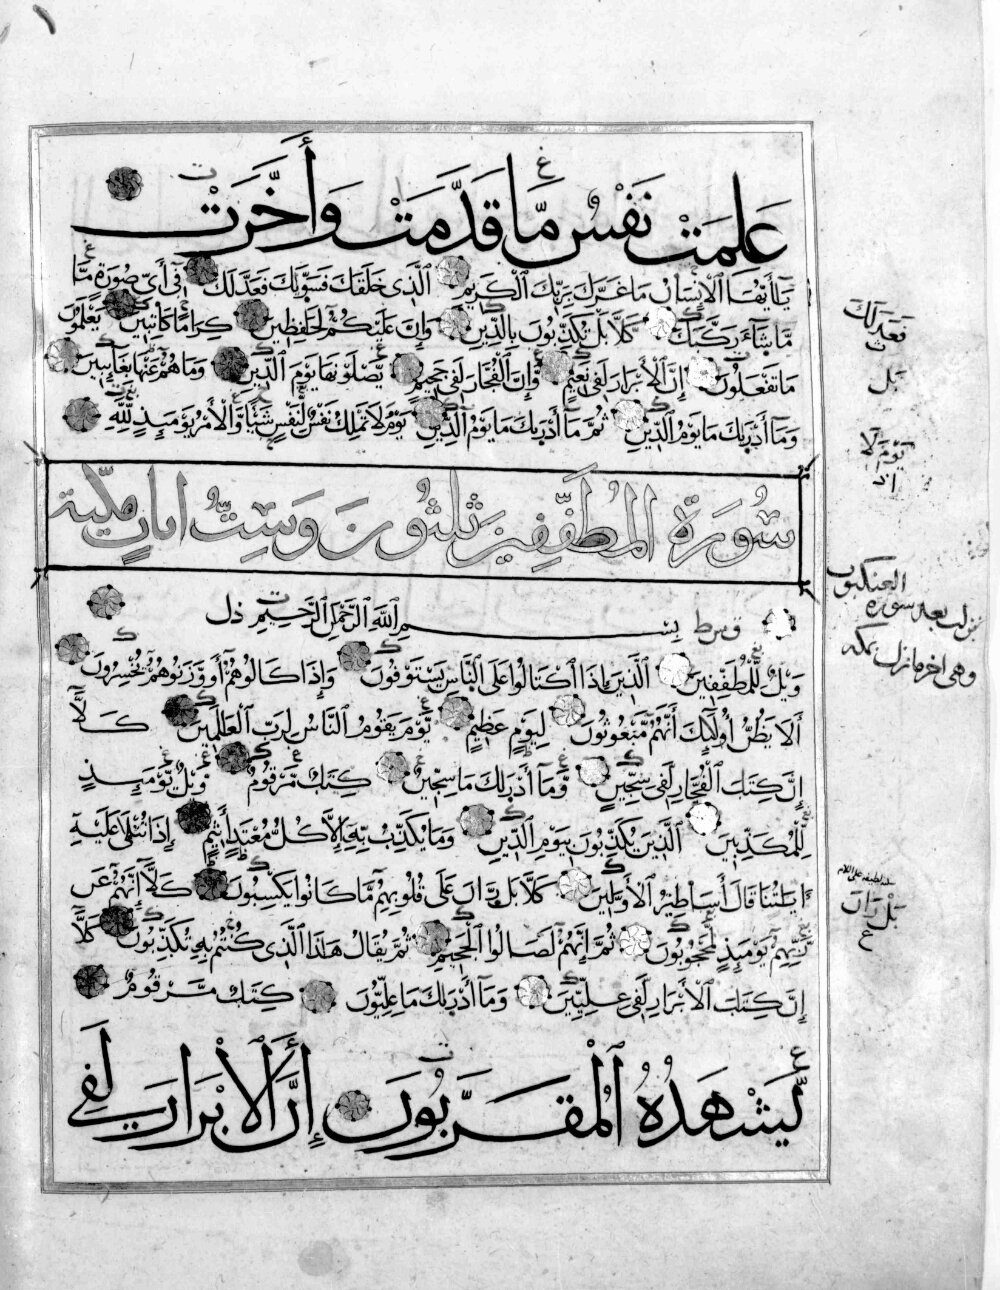 عَلِمَتْ نَفْسٌ مَّا قَدَّمَتْ وَأَخَّرَتْ
يَا أَيُّهَا الْإِنسَانُ مَا غَرَّكَ بِرَبِّكَ الْكَرِيمِ الَّذِي خَلَقَكَ فَسَوَّيكَ فَعَدَّلَكَ فِي أَيِّ صُورَةٍ مَّا
مَّا شَآءَ رَكَّبَكَ كَلَّا بَلْ تُكَذِّبُونَ بِالدِّينِ وَإِنَّ عَلَيْكُمْ لَحَافِظِينَ كِرَامًا كَاتِبِينَ يَعْلَمُونَ
مَا تَفْعَلُونَ إِنَّ الْأَبْرَارَ لَفِي نَعِيمٍ وَإِنَّ الْفُجَّارَ لَفِي جَحِيمٍ يَصْلَوْنَهَا يَوْمَ الدِّينِ وَمَا هُمْ عَنْهَا بِغَآئِبِينَ
وَمَآ أَدْرَيكَ مَا يَوْمُ الدِّينِ ثُمَّ مَآ أَدْرَيكَ مَا يَوْمُ الدِّينِ يَوْمَ لَا تَمْلِكُ نَفْسٌ لِّنَفْسٍ شَيْئًا وَالْأَمْرُ يَوْمَئِذٍ لِلَّهِ
سُورَةُ الْمُطَفِّفِينَ ثَلٰثُونَ وَسِتُّ اٰيَاتٍ مَكِّيَّة
بِسْمِ اللَّهِ الرَّحْمٰنِ الرَّحِيمِ
وَيْلٌ لِّلْمُطَفِّفِينَ الَّذِينَ إِذَا اكْتَالُوا عَلَى النَّاسِ يَسْتَوْفُونَ وَإِذَا كَالُوهُمْ أَو وَّزَنُوهُمْ يُخْسِرُونَ
أَلَا يَظُنُّ أُولَٰٓئِكَ أَنَّهُم مَّبْعُوثُونَ لِيَوْمٍ عَظِيمٍ يَوْمَ يَقُومُ النَّاسُ لِرَبِّ الْعَالَمِينَ كَلَّآ
إِنَّ كِتَٰبَ الْفُجَّارِ لَفِي سِجِّينٍ وَمَآ أَدْرَيكَ مَا سِجِّينٌ كِتَٰبٌ مَّرْقُومٌ وَيْلٌ يَوْمَئِذٍ
لِلْمُكَذِّبِينَ الَّذِينَ يُكَذِّبُونَ بِيَوْمِ الدِّينِ وَمَا يُكَذِّبُ بِهِ إِلَّا كُلُّ مُعْتَدٍ أَثِيمٍ إِذَا تُتْلَى عَلَيْهِ
اٰيَٰتُنَا قَالَ أَسَاطِيرُ الْأَوَّلِينَ كَلَّا بَل رَّانَ عَلَى قُلُوبِهِم مَّا كَانُوا يَكْسِبُونَ كَلَّا إِنَّهُمْ عَن
رَّبِّهِمْ يَوْمَئِذٍ لَّمَحْجُوبُونَ ثُمَّ إِنَّهُمْ لَصَالُوا الْجَحِيمِ ثُمَّ يُقَالُ هَذَا الَّذِي كُنتُم بِهِ تُكَذِّبُونَ كَلَّآ
إِنَّ كِتَٰبَ الْأَبْرَارِ لَفِي عِلِّيِّينَ وَمَآ أَدْرَيكَ مَا عِلِّيُّونَ كِتَٰبٌ مَّرْقُومٌ
يَشْهَدُهُ الْمُقَرَّبُونَ إِنَّ الْأَبْرَارَ لَفِي
فَعَدَلَكَ
بَل
يَوْمُ لَا
العنكبوت
نزلت بعد سورة
وهي اخر ما نزل بمكة
بَلْ رَانَ